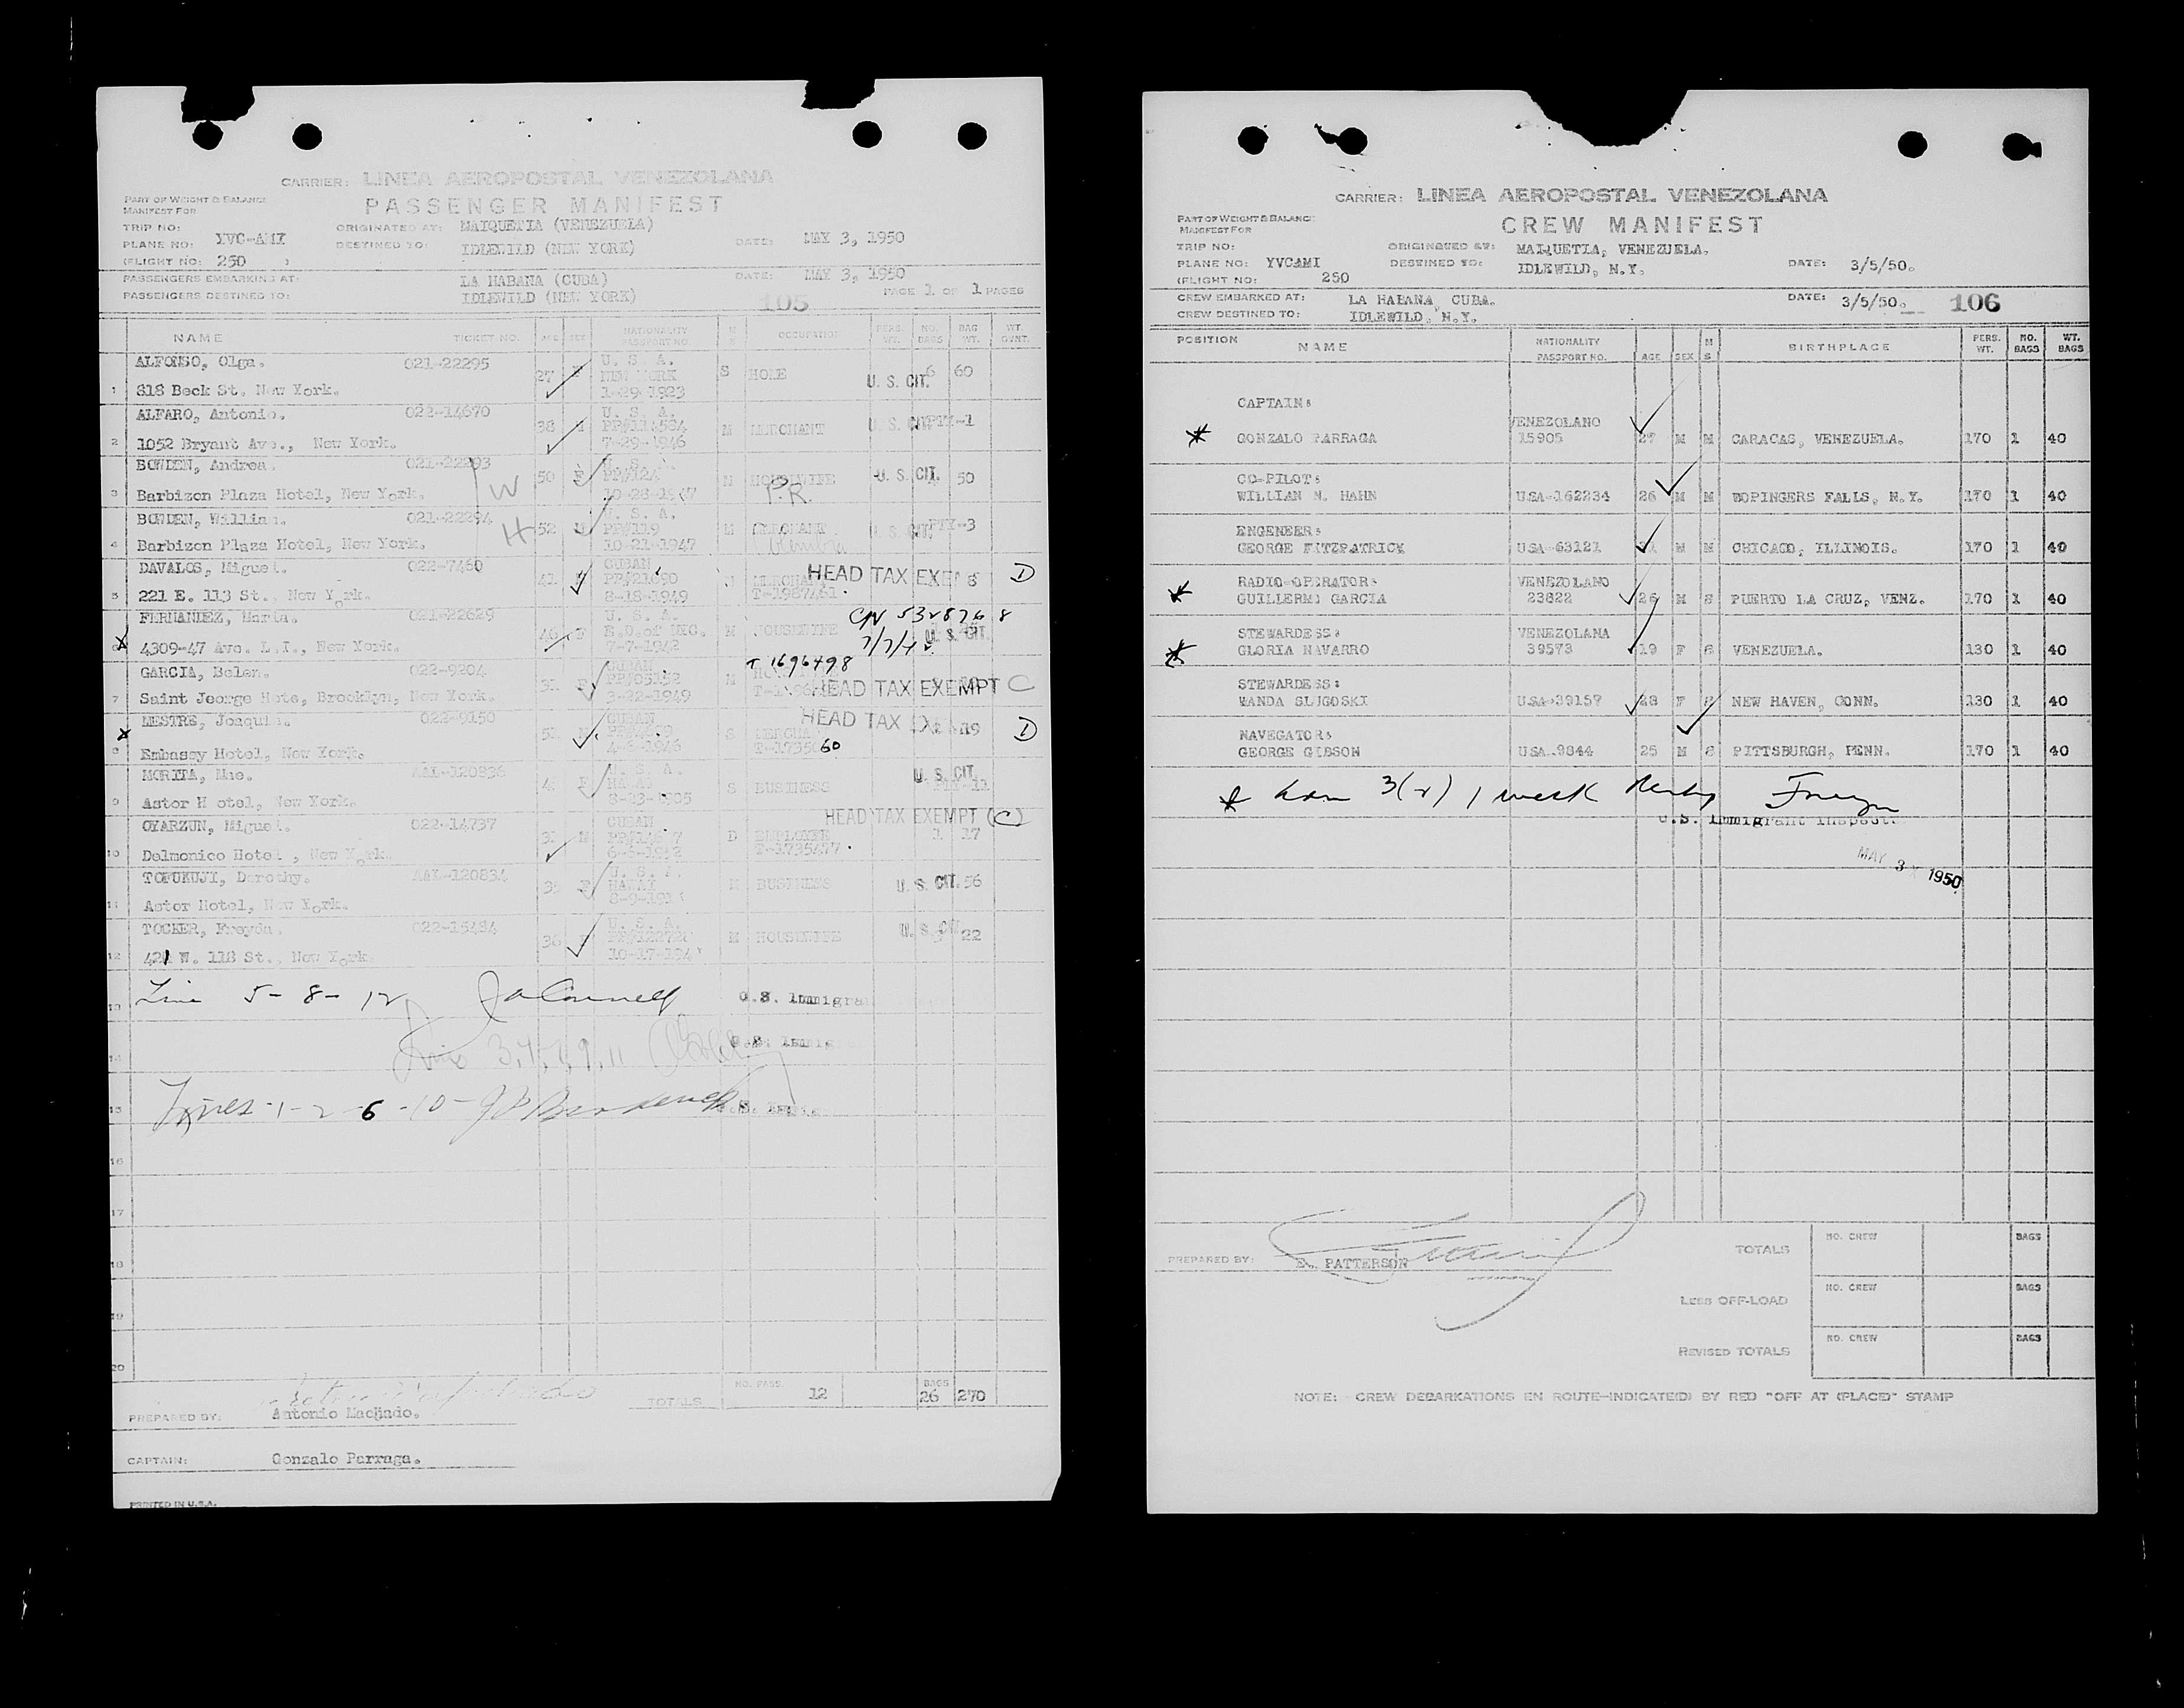 CARRIER: LINEA AEROPOSTAL VENEZOLANA
PASSENGER MANIFEST
PART OF WEIGHT & BALANCE
MANIFEST FOR
TRIP NO:
PLANE NO: YVC-AMI
(FLIGHT NO: 250 )
ORIGINATED AT: MAIQUETIA (VENEZUELA)
DESTINED TO: IDLEWILD (NEW YORK)
DATE: MAY 3, 1950
PASSENGERS EMBARKING AT: LA HABANA (CUBA) DATE: MAY 3, 1950
PASSENGERS DESTINED TO: IDLEWILD (NEW YORK) PAGE 1 OF 1 PAGES
105
NAME TICKET NO. AGE SEX NATIONALITY PASSPORT NO. M S OCCUPATION PERS. WT. NO. BAGS BAG WT. WT.
ALFONSO, Olga. 021-22295 27 F U. S. A. NEW YORK 1-29-1923 S HOME U. S. CIT. 6 60
1 818 Beck St. New York.
ALFARO, Antonio. 022-14670 38 M U. S. A. PP#114584 7-29-1946 M MERCHANT U. S. CIT. PTY-1
2 1052 Bryant Ave., New York.
BOWDEN, Andrea. 021-22293 W 50 F U. S. A. PP#124 10-28-1947 M HOUSEWIFE P.R. U. S. CIT. 50
3 Barbizon Plaza Hotel, New York.
BOWDEN, William. 021-22294 H 52 M U. S. A. PP#119 10-21-1947 M MERCHANT U. S. CIT. PTY-3
4 Barbizon Plaza Hotel, New York.
DAVALOS, Miguel. 022-7460 41 CUBAN PP#21690 8-18-1949 MERCHANT T-1987461. HEAD TAX EXEMPT 8 D
5 221 E. 113 St., New York.
FERNANDEZ, Maria. 021-22629 46 F U. S. A. 7-7-1942 M HOUSEWIFE U. S. CIT.
6 4309-47 Ave. L.I., New York.
GARCIA, Belen. 022-9204 F CUBAN 3-22-1949 M T 1696498 HEAD TAX EXEMPT C
7 Saint George Hote, Brooklyn, New York.
MESTRE, Joaquin. 022-9150 CUBAN S HEAD TAX 19 D
8 Embassy Hotel, New York. 60
MORITA, Mae. AAL-120836 F U. S. A. 8-23-1905 S BUSINESS U. S. CIT.
9 Astor H otel, New York.
OYARZUN, Miguel. 022-14737 M CUBAN D EMPLOYEE T-1735477. HEAD TAX EXEMPT (C) 1 17
10 Delmonico Hotel, New York.
TOFUKUJI, Dorothy. AAL-120834 F HAWAI BUSINESS U. S. CIT. 56
11 Astor Hotel, New York.
TOCKER, Freyda. 022-15484 36 F U. S. A. M HOUSEWIFE U. S. CIT 22
12 421 W. 118 St., New York.
13 Line 5-8-12 U.S. Immigra
14
15 Lines-1-2-6-10-
16
17
18
19
20
TOTALS NO. PASS. 12 BAGS 26 270
PREPARED BY: Antonio Machado.
CAPTAIN: Gonzalo Parraga.
PRINTED IN U.S.A.
CARRIER: LINEA AEROPOSTAL VENEZOLANA
CREW MANIFEST
PART OF WEIGHT & BALANCE
MANIFEST FOR
TRIP NO:
PLANE NO: YVCAMI
(FLIGHT NO: 250
ORIGINATED AT: MAIQUETIA, VENEZUELA.
DESTINED TO: IDLEWILD, N.Y.
DATE: 3/5/50.
CREW EMBARKED AT: LA HABANA, CUBA. DATE: 3/5/50. 106
CREW DESTINED TO: IDLEWILD, N.Y.
POSITION NAME NATIONALITY PASSPORT NO. AGE SEX M S BIRTHPLACE PERS. WT. NO. BAGS WT. BAGS
CAPTAIN: VENEZOLANO
GONZALO PARRAGA 15905 27 M M CARACAS, VENEZUELA. 170 1 40
CO-PILOT:
WILLIAN N. HAHN USA-162234 26 M M WOPINGERS FALLS, N.Y. 170 1 40
ENGENEER:
GEORGE FITZPATRICK USA-63121 M M CHICAGO, ILLINOIS. 170 1 40
RADIO-OPERATOR: VENEZOLANO
GUILLERMO GARCIA 23822 26 M S PUERTO LA CRUZ, VENZ. 170 1 40
STEWARDESS: VENEZOLANA
GLORIA NAVARRO 39573 19 F S VENEZUELA. 130 1 40
STEWARDESS:
WANDA SLUGOSKI USA-39157 28 F S NEW HAVEN, CONN. 130 1 40
NAVEGATOR:
GEORGE GIBSON USA.9844 25 M S PITTSBURGH, PENN. 170 1 40
3(2) 1 week
U.S. Immigrant Inspect.
MAY 3 1950
PREPARED BY: E. PATTERSON
TOTALS NO. CREW BAGS
LESS OFF-LOAD NO. CREW BAGS
REVISED TOTALS NO. CREW BAGS
NOTE: CREW DEBARKATIONS EN ROUTE-INDICATE(D) BY RED "OFF AT (PLACE)" STAMP